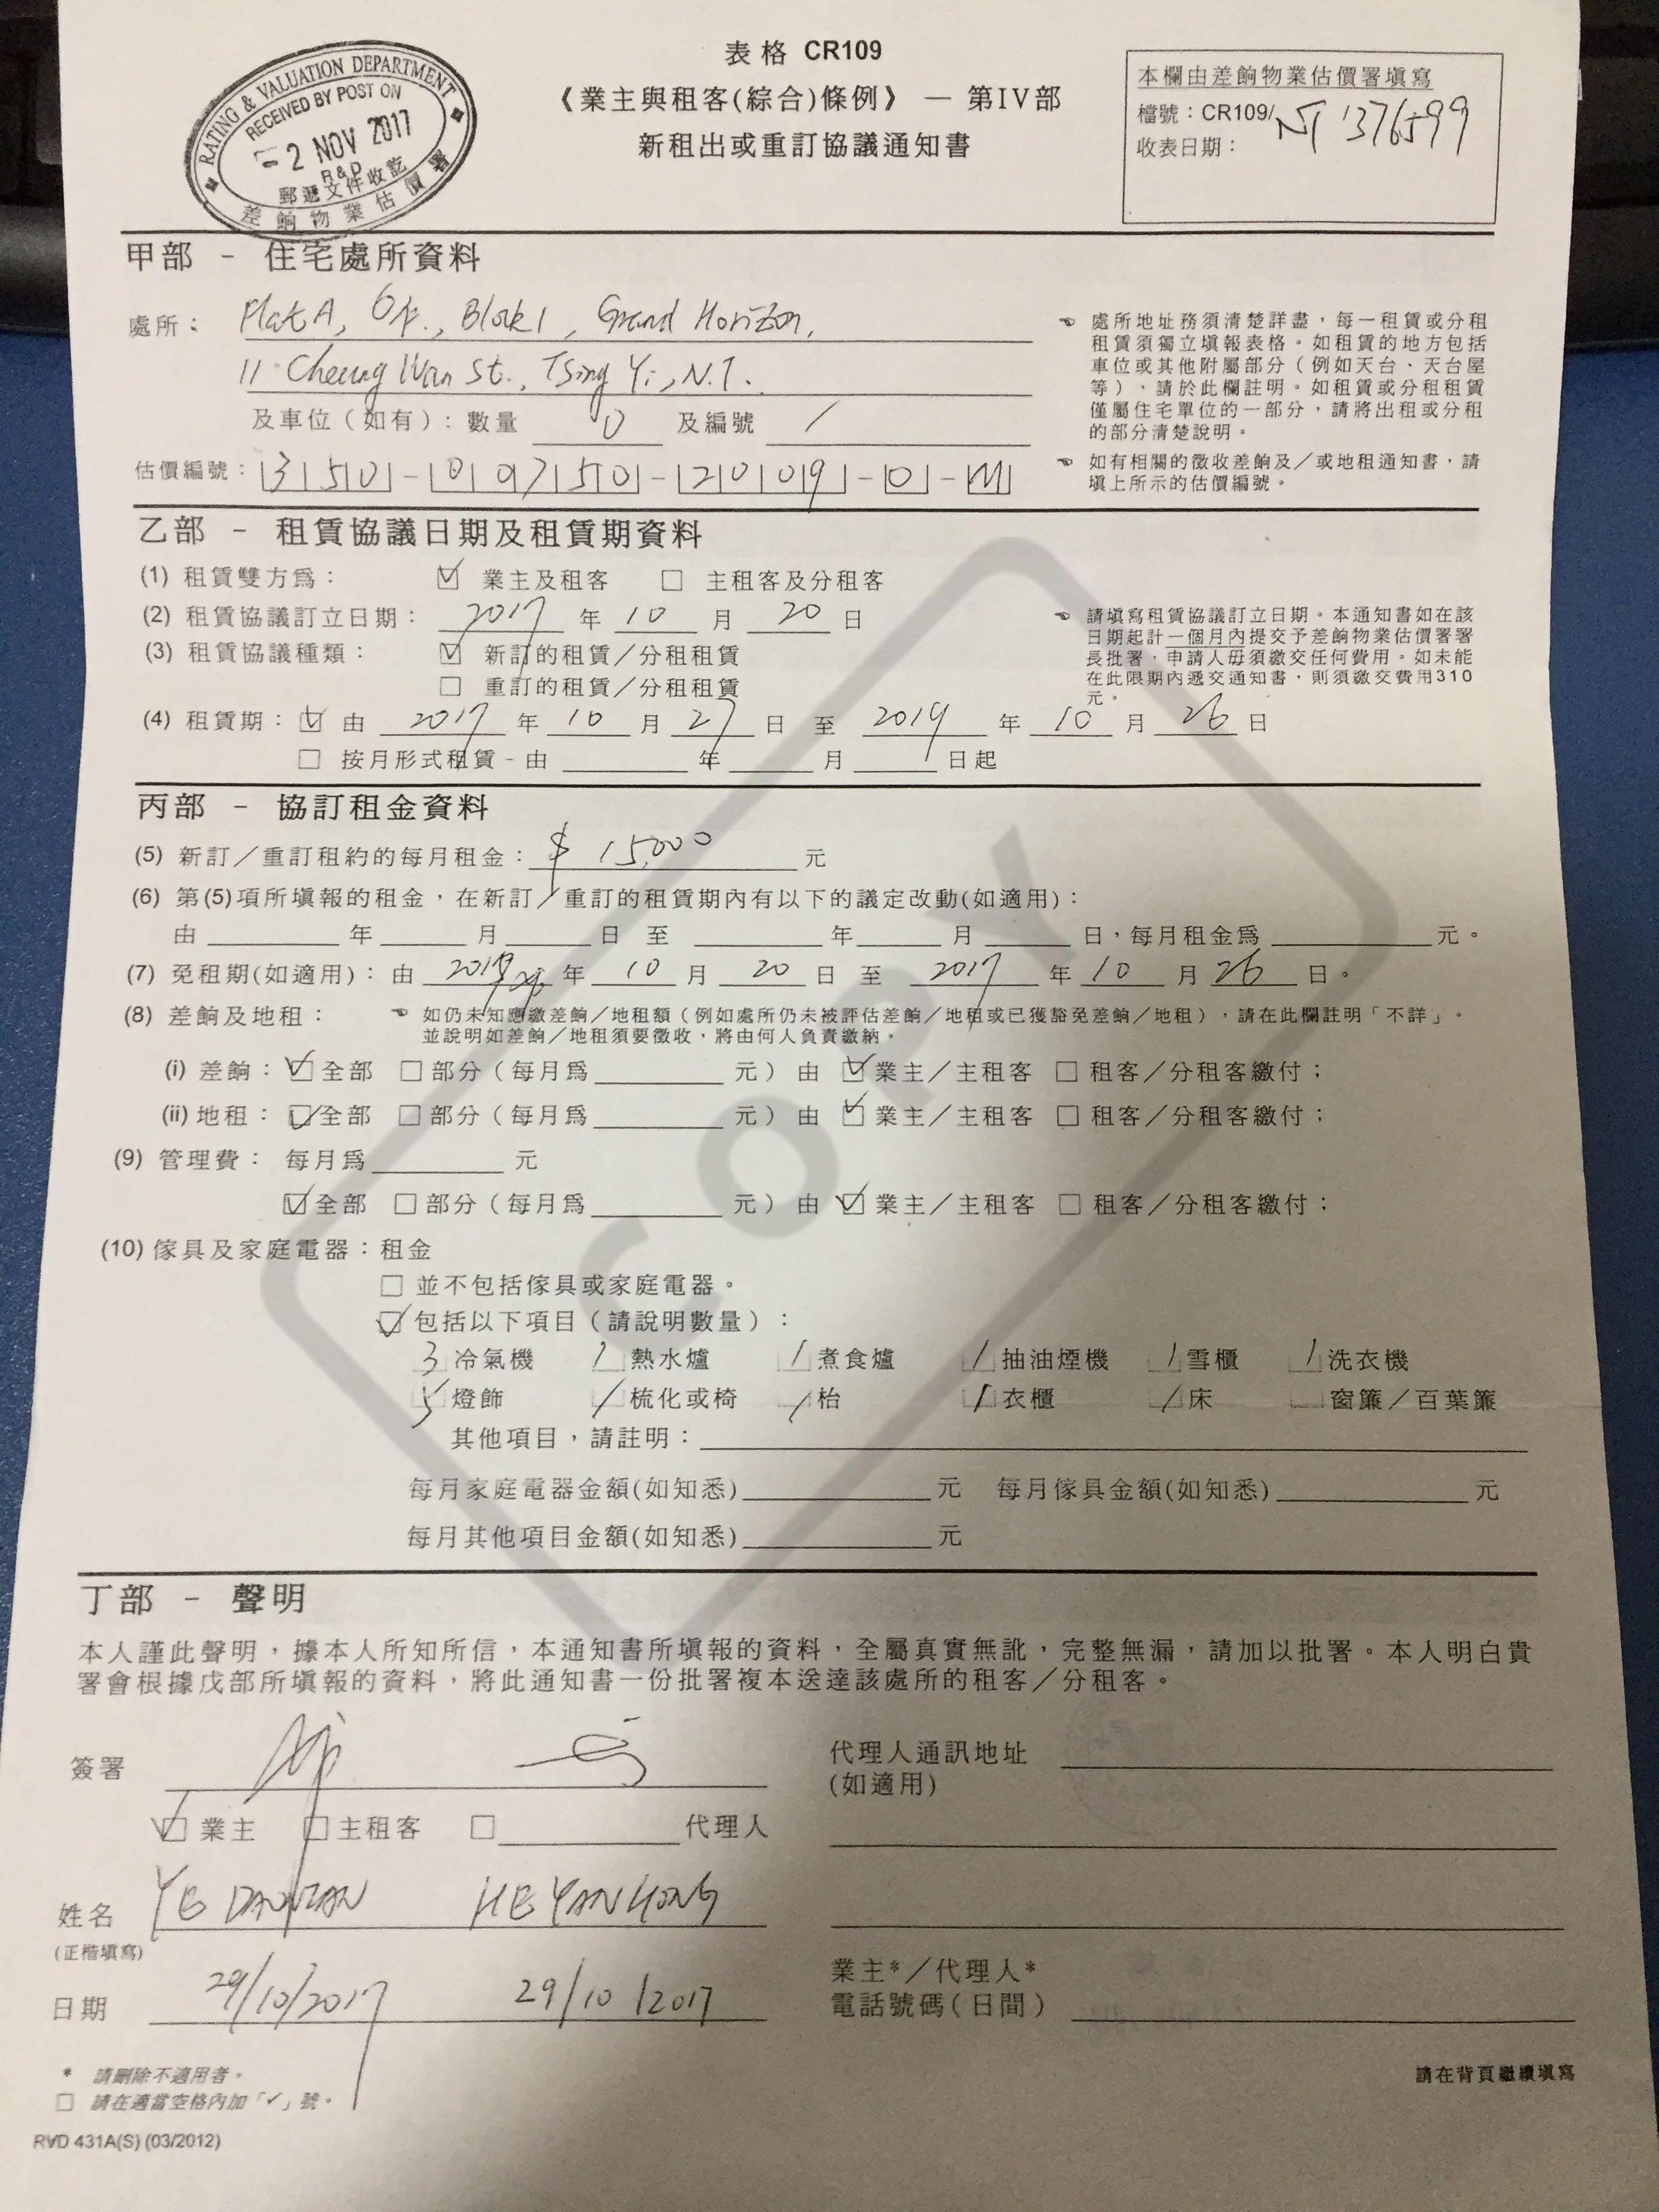 表格 CR109
《業主與租客(綜合)條例》 — 第IV部
新租出或重訂協議通知書
RATING & VALUATION DEPARTMENT
RECEIVED BY POST ON
- 2 NOV 2017
R & D
郵遞文件收訖
差餉物業估價署
本欄由差餉物業估價署填寫
檔號：CR109/ NT 1376599
收表日期：
甲部 - 住宅處所資料
處所： Flat A, 6/F., Block 1, Grand Horizon,
11 Cheung Wan St., Tsing Yi, N.T.
及車位（如有）：數量 0 及編號 /
估價編號： 350 - 09750 - 2009 - 0 - M
☞ 處所地址務須清楚詳盡，每一租賃或分租
租賃須獨立填報表格。如租賃的地方包括
車位或其他附屬部分（例如天台、天台屋
等），請於此欄註明。如租賃或分租租賃
僅屬住宅單位的一部分，請將出租或分租
的部分清楚說明。
☞ 如有相關的徵收差餉及／或地租通知書，請
填上所示的估價編號。
乙部 - 租賃協議日期及租賃期資料
(1) 租賃雙方為： ☑ 業主及租客 □ 主租客及分租客
(2) 租賃協議訂立日期： 2017 年 10 月 20 日
(3) 租賃協議種類： ☑ 新訂的租賃／分租租賃
□ 重訂的租賃／分租租賃
☞ 請填寫租賃協議訂立日期。本通知書如在該
日期起計一個月內提交予差餉物業估價署署
長批署，申請人毋須繳交任何費用。如未能
在此限期內遞交通知書，則須繳交費用310
元。
(4) 租賃期： ☑ 由 2017 年 10 月 27 日 至 2019 年 10 月 26 日
□ 按月形式租賃 - 由 年 月 日起
丙部 - 協訂租金資料
(5) 新訂／重訂租約的每月租金： $ 15,000 元
(6) 第(5)項所填報的租金，在新訂／重訂的租賃期內有以下的議定改動(如適用)：
由 年 月 日 至 年 月 日，每月租金為 元。
(7) 免租期(如適用)： 由 2017 年 10 月 20 日 至 2017 年 10 月 26 日。
(8) 差餉及地租： ☞ 如仍未知應繳差餉／地租額（例如處所仍未被評估差餉／地租或已獲豁免差餉／地租），請在此欄註明「不詳」。
並說明如差餉／地租須要徵收，將由何人負責繳納。
(i) 差餉： ☑ 全部 □ 部分（每月為 元） 由 ☑ 業主／主租客 □ 租客／分租客繳付；
(ii) 地租： ☑ 全部 □ 部分（每月為 元） 由 ☑ 業主／主租客 □ 租客／分租客繳付；
(9) 管理費： 每月為 元
☑ 全部 □ 部分（每月為 元） 由 ☑ 業主／主租客 □ 租客／分租客繳付；
(10) 傢具及家庭電器：租金
□ 並不包括傢具或家庭電器。
☑ 包括以下項目（請說明數量）：
3 冷氣機 1 熱水爐 1 煮食爐 1 抽油煙機 1 雪櫃 1 洗衣機
5 燈飾 1 梳化或椅 1 枱 1 衣櫃 1 床 窗簾／百葉簾
其他項目，請註明：
每月家庭電器金額(如知悉) 元 每月傢具金額(如知悉) 元
每月其他項目金額(如知悉) 元
COPY
丁部 - 聲明
本人謹此聲明，據本人所知所信，本通知書所填報的資料，全屬真實無訛，完整無漏，請加以批署。本人明白貴
署會根據戊部所填報的資料，將此通知書一份批署複本送達該處所的租客／分租客。
簽署
☑ 業主 □ 主租客 □ 代理人
代理人通訊地址
(如適用)
姓名 YE HE YANHONG
(正楷填寫)
日期 29/10/2017 29/10/2017
業主*／代理人*
電話號碼（日間）
* 請刪除不適用者。
□ 請在適當空格內加「✓」號。
請在背頁繼續填寫
RVD 431A(S) (03/2012)